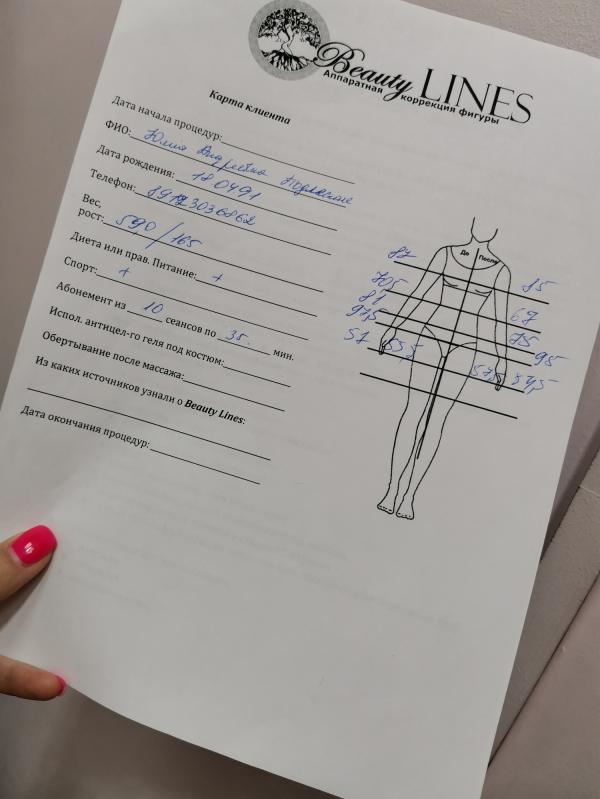 Beauty LINES
Аппаратная коррекция фигуры
Карта клиента
Дата начала процедур:
ФИО: Юлия Андреевна
Дата рождения: 180491
Телефон: 89123036862
Вес,
рост: 59,0 / 165
Диета или прав. Питание: +
Спорт: +
Абонемент из 10 сеансов по 35. мин.
Испол. антицел-го геля под костюм:
Обертывание после массажа:
Из каких источников узнали о Beauty Lines:
Дата окончания процедур:
До После
87 85
70,5 67
81 75
97,5 95
57 55,5 57,5 54,5